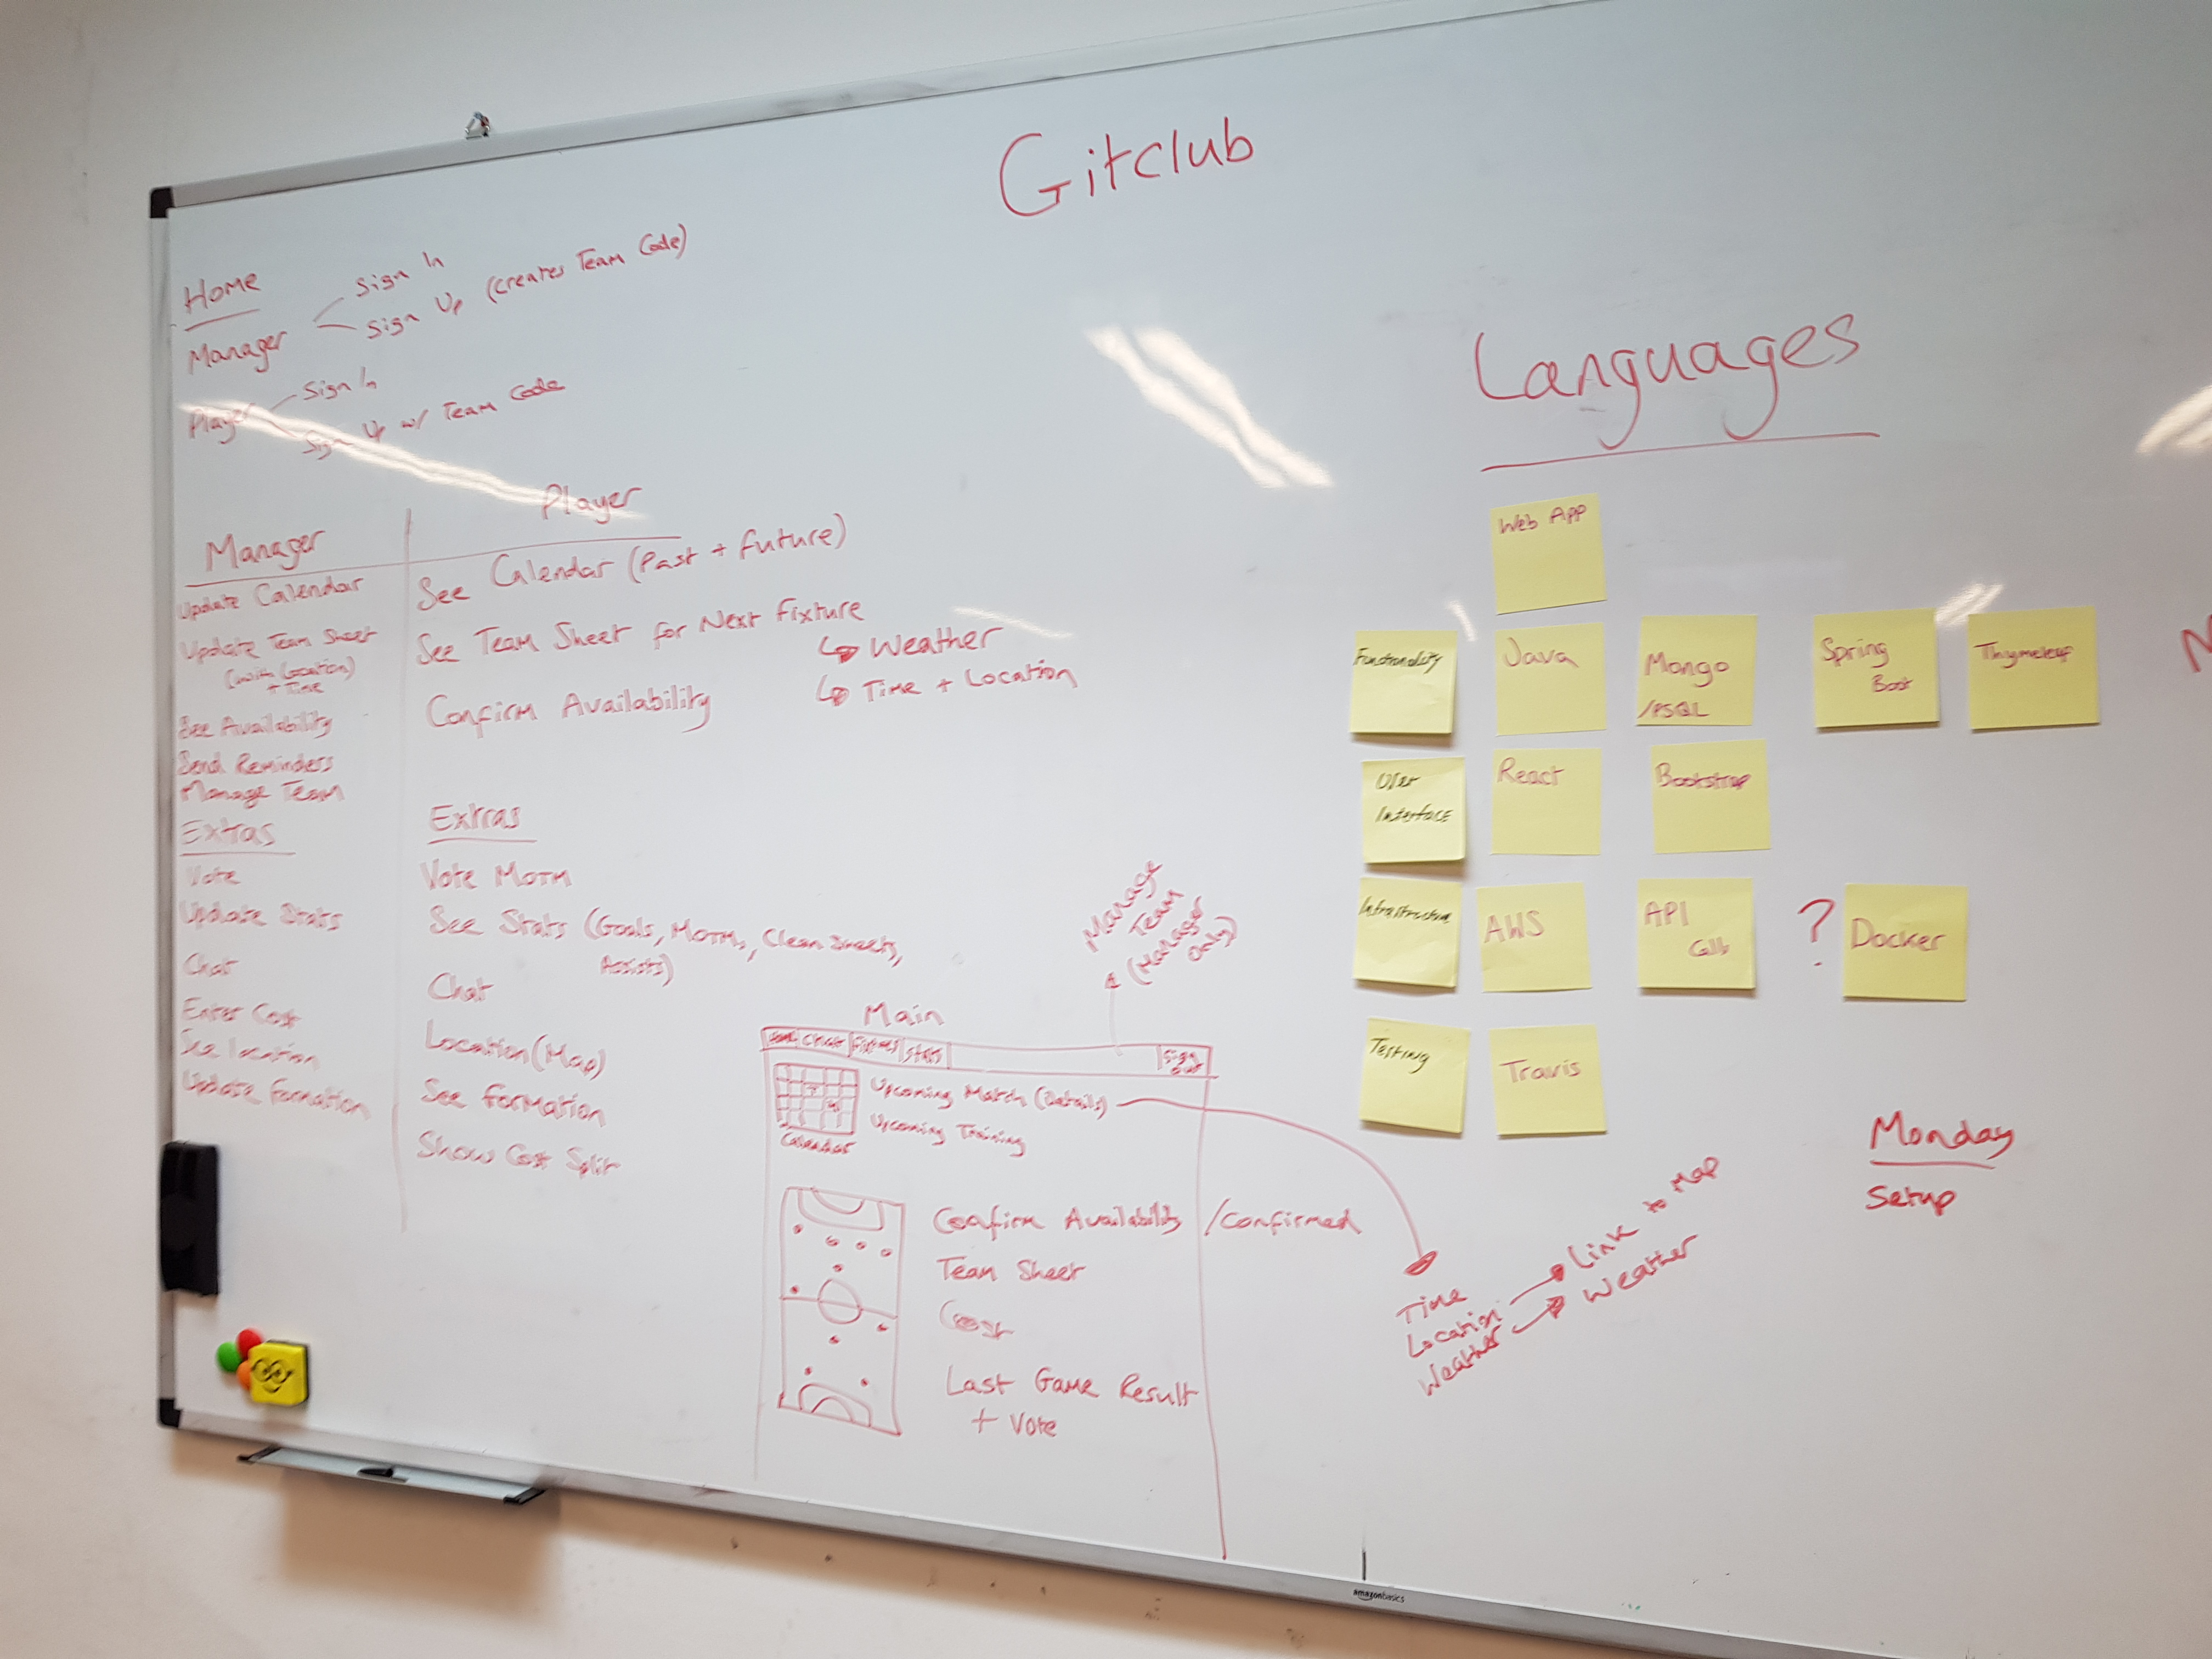 Gitclub
Home
Manager
Sign In
Sign Up (creates Team Code)
Player
Sign In
Sign Up w/ Team Code
Manager
Update Calendar
Update Team Sheet
(with location)
+ Time
See Availability
Send Reminders
Manage Team
Extras
Vote
Update Stats
Chat
Enter Cost
See location
Update Formation
Player
See Calendar (Past + future)
See Team Sheet for Next Fixture
↳ Weather
↳ Time + Location
Confirm Availability
Extras
Vote MOTM
See Stats (Goals, MOTMs, Clean Sheets,
Assists)
Chat
Location (Map)
See Formation
Show Cost Split
Manage
Team
(Manager
only)
Main
Chat
Stats
Sign
out
Calendar
Upcoming Match (Details)
Upcoming Training
Confirm Availability /Confirmed
Team Sheet
Cost
Last Game Result
+ Vote
Time
Location
Weather
Link to Map
Weather
Languages
Web App
Functionality
Java
Mongo
/PSQL
Spring
Boot
Thymeleaf
User
Interface
React
Bootstrap
Infrastructure
AWS
API
Calls
?
Docker
Testing
Travis
Monday
Setup
amazonbasics